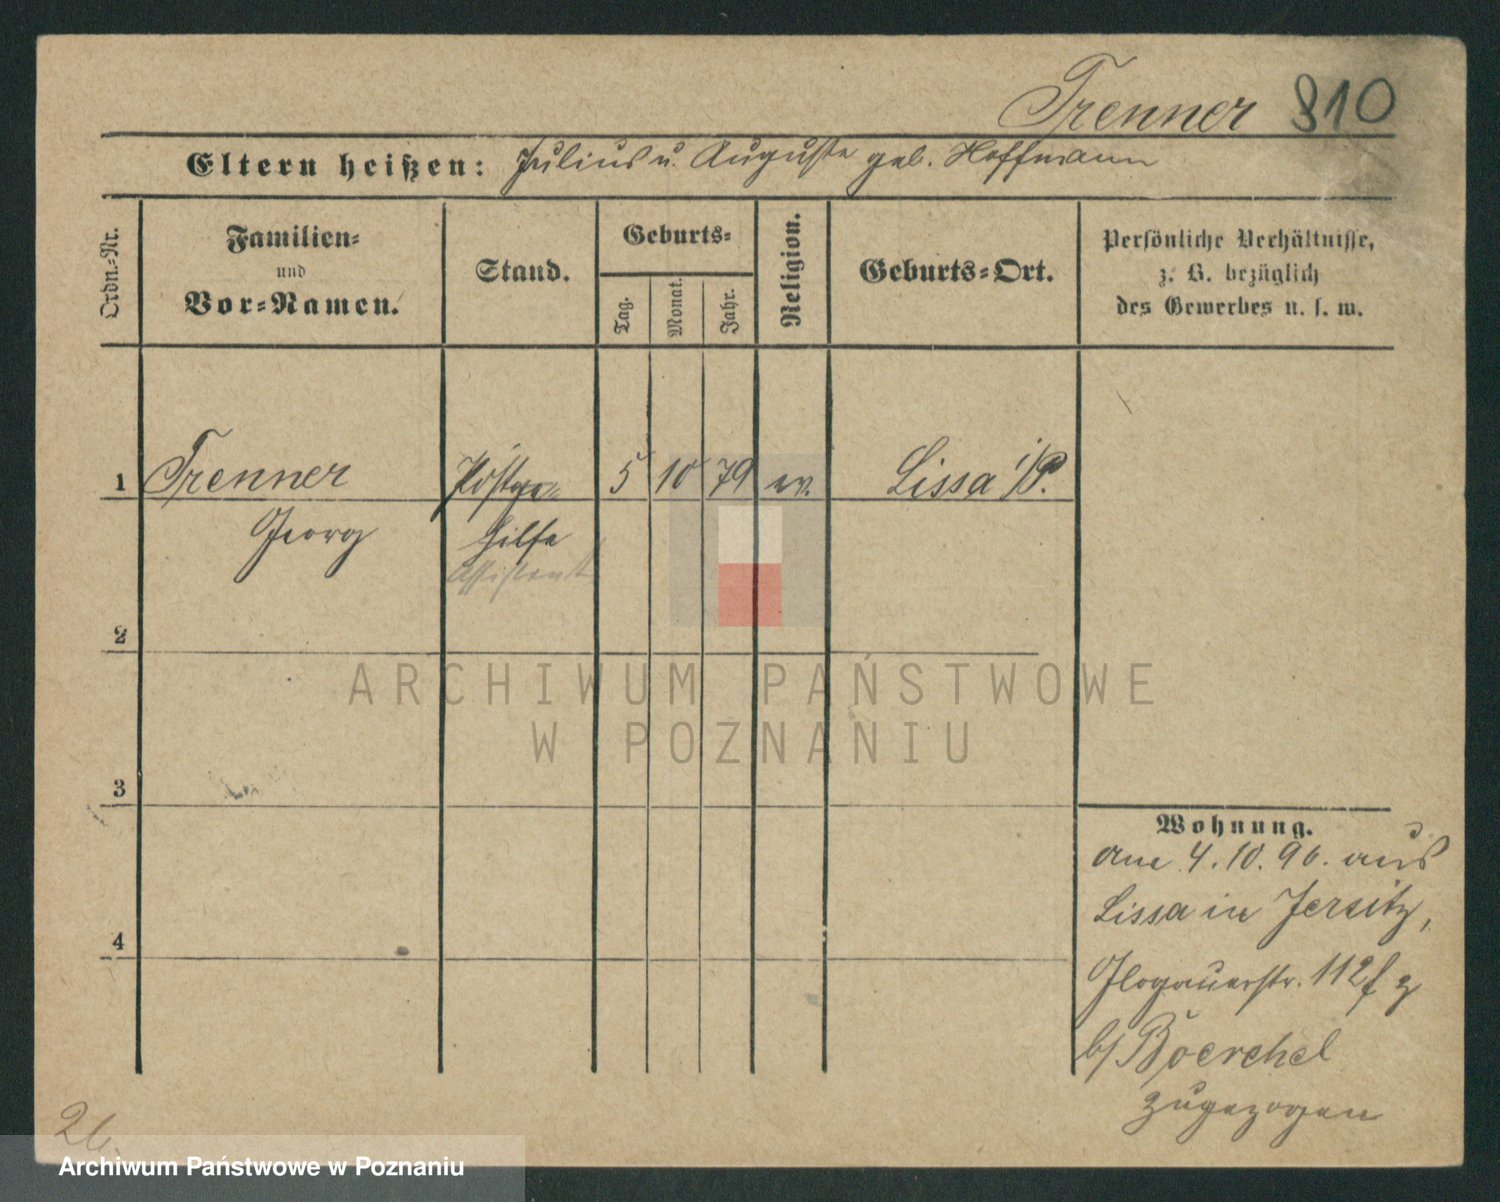 Trenner 810
Eltern heißen: Julius u. Auguste geb. Hoffmann
Ordn.-Nr.
Familien-
und
Vor-Namen.
Stand.
Geburts-
Tag.
Monat.
Jahr.
Religion.
Geburts-Ort.
Persönliche Verhältnisse,
z. B. bezüglich
des Gewerbes u. s. w.
1 Trenner Postge- 5 10 79 ev. Lissa i/P.
Georg hilfe
Assistent
2
3
4
Wohnung.
am 4.10.96. aus
Lissa in Jersitz,
Glogauerstr. 112f
b/ Boerchel
zugezogen
26.
ARCHIWUM PAŃSTWOWE
W POZNANIU
Archiwum Państwowe w Poznaniu